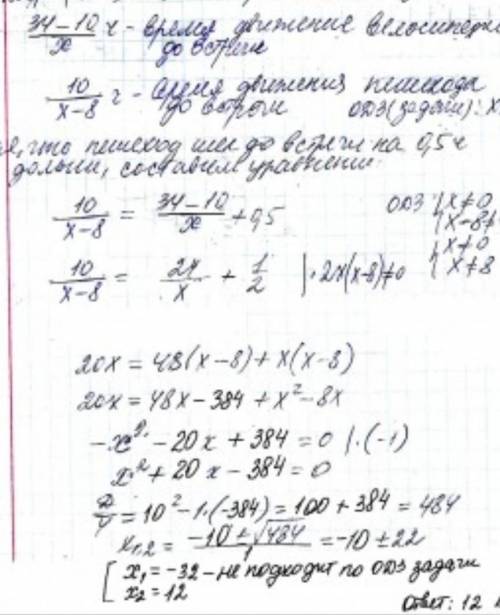 (34-10)/x ч - время движение велосипеда
до встречи
10/(x-8) ч - время движения пешехода
до встречи ОДЗ (задачи): x
что пешеход шел до встречи на 0,5 ч
дольше, составим уравнение:
10/(x-8) = (34-10)/x + 0,5 ОДЗ { x≠0
{ x-8≠
10/(x-8) = 24/x + 1/2 |·2x(x-8)≠0 { x≠0
{ x≠8
20x = 48(x-8) + x(x-8)
20x = 48x - 384 + x² - 8x
-x² - 20x + 384 = 0 |·(-1)
x² + 20x - 384 = 0
D/4 = 10² - 1·(-384) = 100 + 384 = 484
x1,2 = (-10 ± √484)/1 = -10 ± 22
[ x1 = -32 - не подходит по ОДЗ задачи
x2 = 12
Ответ: 12